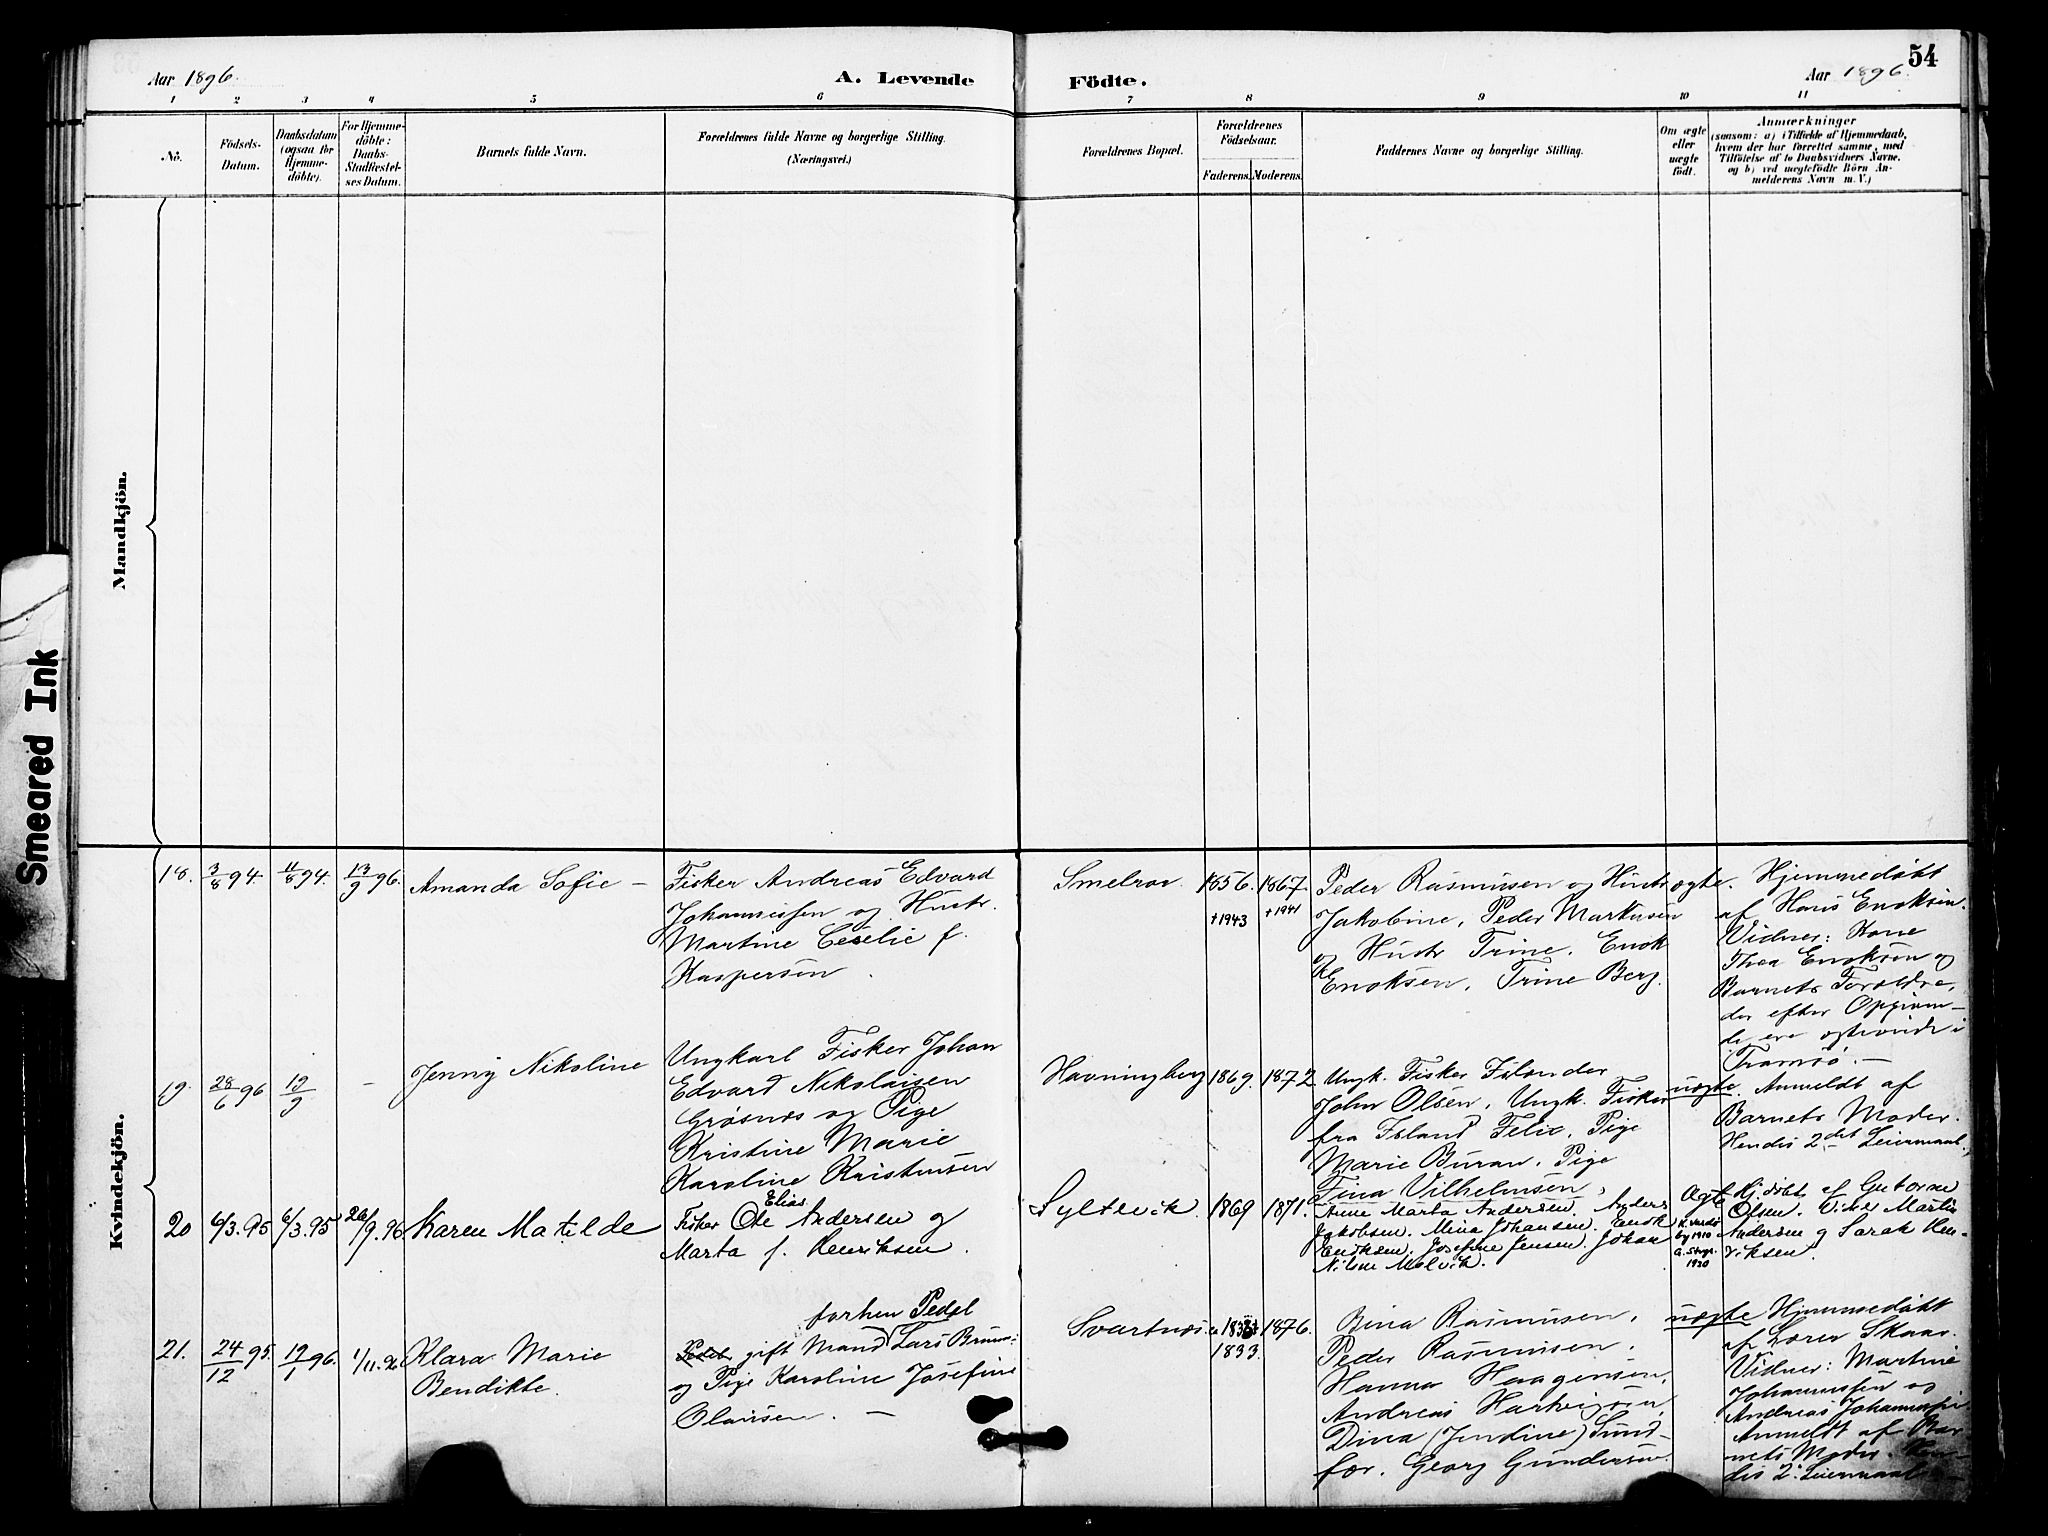 54
Aar 1896.
A. Levende
Födte.
Aar 1896.
1 2 3 4 5 6 7 8 9 10 11
No.
Födsels-
Datum.
Daabsdatum
(ogsaa for
Hjemme-
döbte).
For Hjemme-
döbte:
Daabs-
Stadfæstel-
ses Datum.
Barnets fulde Navn.
Forældrenes fulde Navne og borgerlige Stilling.
(Næringsvei.)
Forældrenes Bopæl.
Forældrenes
Födselsaar.
Faderens. Moderens.
Faddernes Navne og borgerlige Stilling.
Om ægte
eller
uægte
födt.
Anmærkninger
(saasom: a) i Tilfælde af Hjemmedaab,
hvem der har forrettet samme, med
Tilföielse af to Daabsvidners Navne.
og b) ved uægtefödte Börn An-
melderens Navn m. V.)
Mandkjön.
Smeared Ink
Kvindekjön.
18. 3/8 94. 11/8 94. 13/9 96. Amanda Sofie –
Fisker Andreas Edvard
Johannessen og Hustr.
Martine Ceselie f.
Kaspersen.
Smelror. 1856. 1867.
†1943 †1941
Peder Rasmussen og Hustr
Jakobine, Peder Markusen
og Hustr Trine, Enok
Enoksen, Trine Berg.
ægte.
Hjemmedøbt
af Hans Enoksen.
Vidner: Kone
Thea Enoksen og
Barnets Forældre,
der efter Opgivende
de ere
Tromsø. –
19. 28/6 96 19/9 – Jenny Nikoline
Ungkarl Fisker Johan
Edvard Nikolaisen
Grøsnes og Pige
Kristine Marie
Karoline Kristensen
Havningberg 1869. 1872
Ungk. Fisker Islænder
John Olsen, Ungk. Fisker
fra Island Felix, Pige
Marie Buran, Pige
Fina Vilhelmsen,
uægte.
Anmeldt af
Barnets Moder.
Hendes 2det Leiermaal.
20 6/3.95 6/3.95 26/9.96 Karen Matilde
Elias
Fisker Ole Andersen og
Marta f. Henriksen.
Syltevik 1869 1871.
Anne Marta Andersen. Anders
Jakobsen. Mina Johansen. Enok
Enoksen. Josefine Jensen. Johan
Nilsen Melvik.
Ægte
K. Vardø
by 1910
1920
Hj. døbt af Guttorm
Olsen. Vidner Martin
Andersen og Sarah Hen-
riksen.
21. 24/12 95. 19/1 96. 1/11.96 Klara Marie
Bendikte.
forhen Pedel
gift Mand Lars Bruun
og Pige Karoline Josefine
Olausen. –
Svartnes. 1876.
1833.
Bina Rasmussen,
Peder Rasmussen,
Hanna Haagensen,
Andreas Hartvigsen,
Dina (Jendine) Sund-
før. Georg Gundersen.
uægte
Hjemmedøbt
af Lærer Skaar.
Vidner: Martine
Johannessen og
Andreas Johannessen
Anmeldt af Bar-
nets Moder. Hen-
des 2. Leiermaal. –